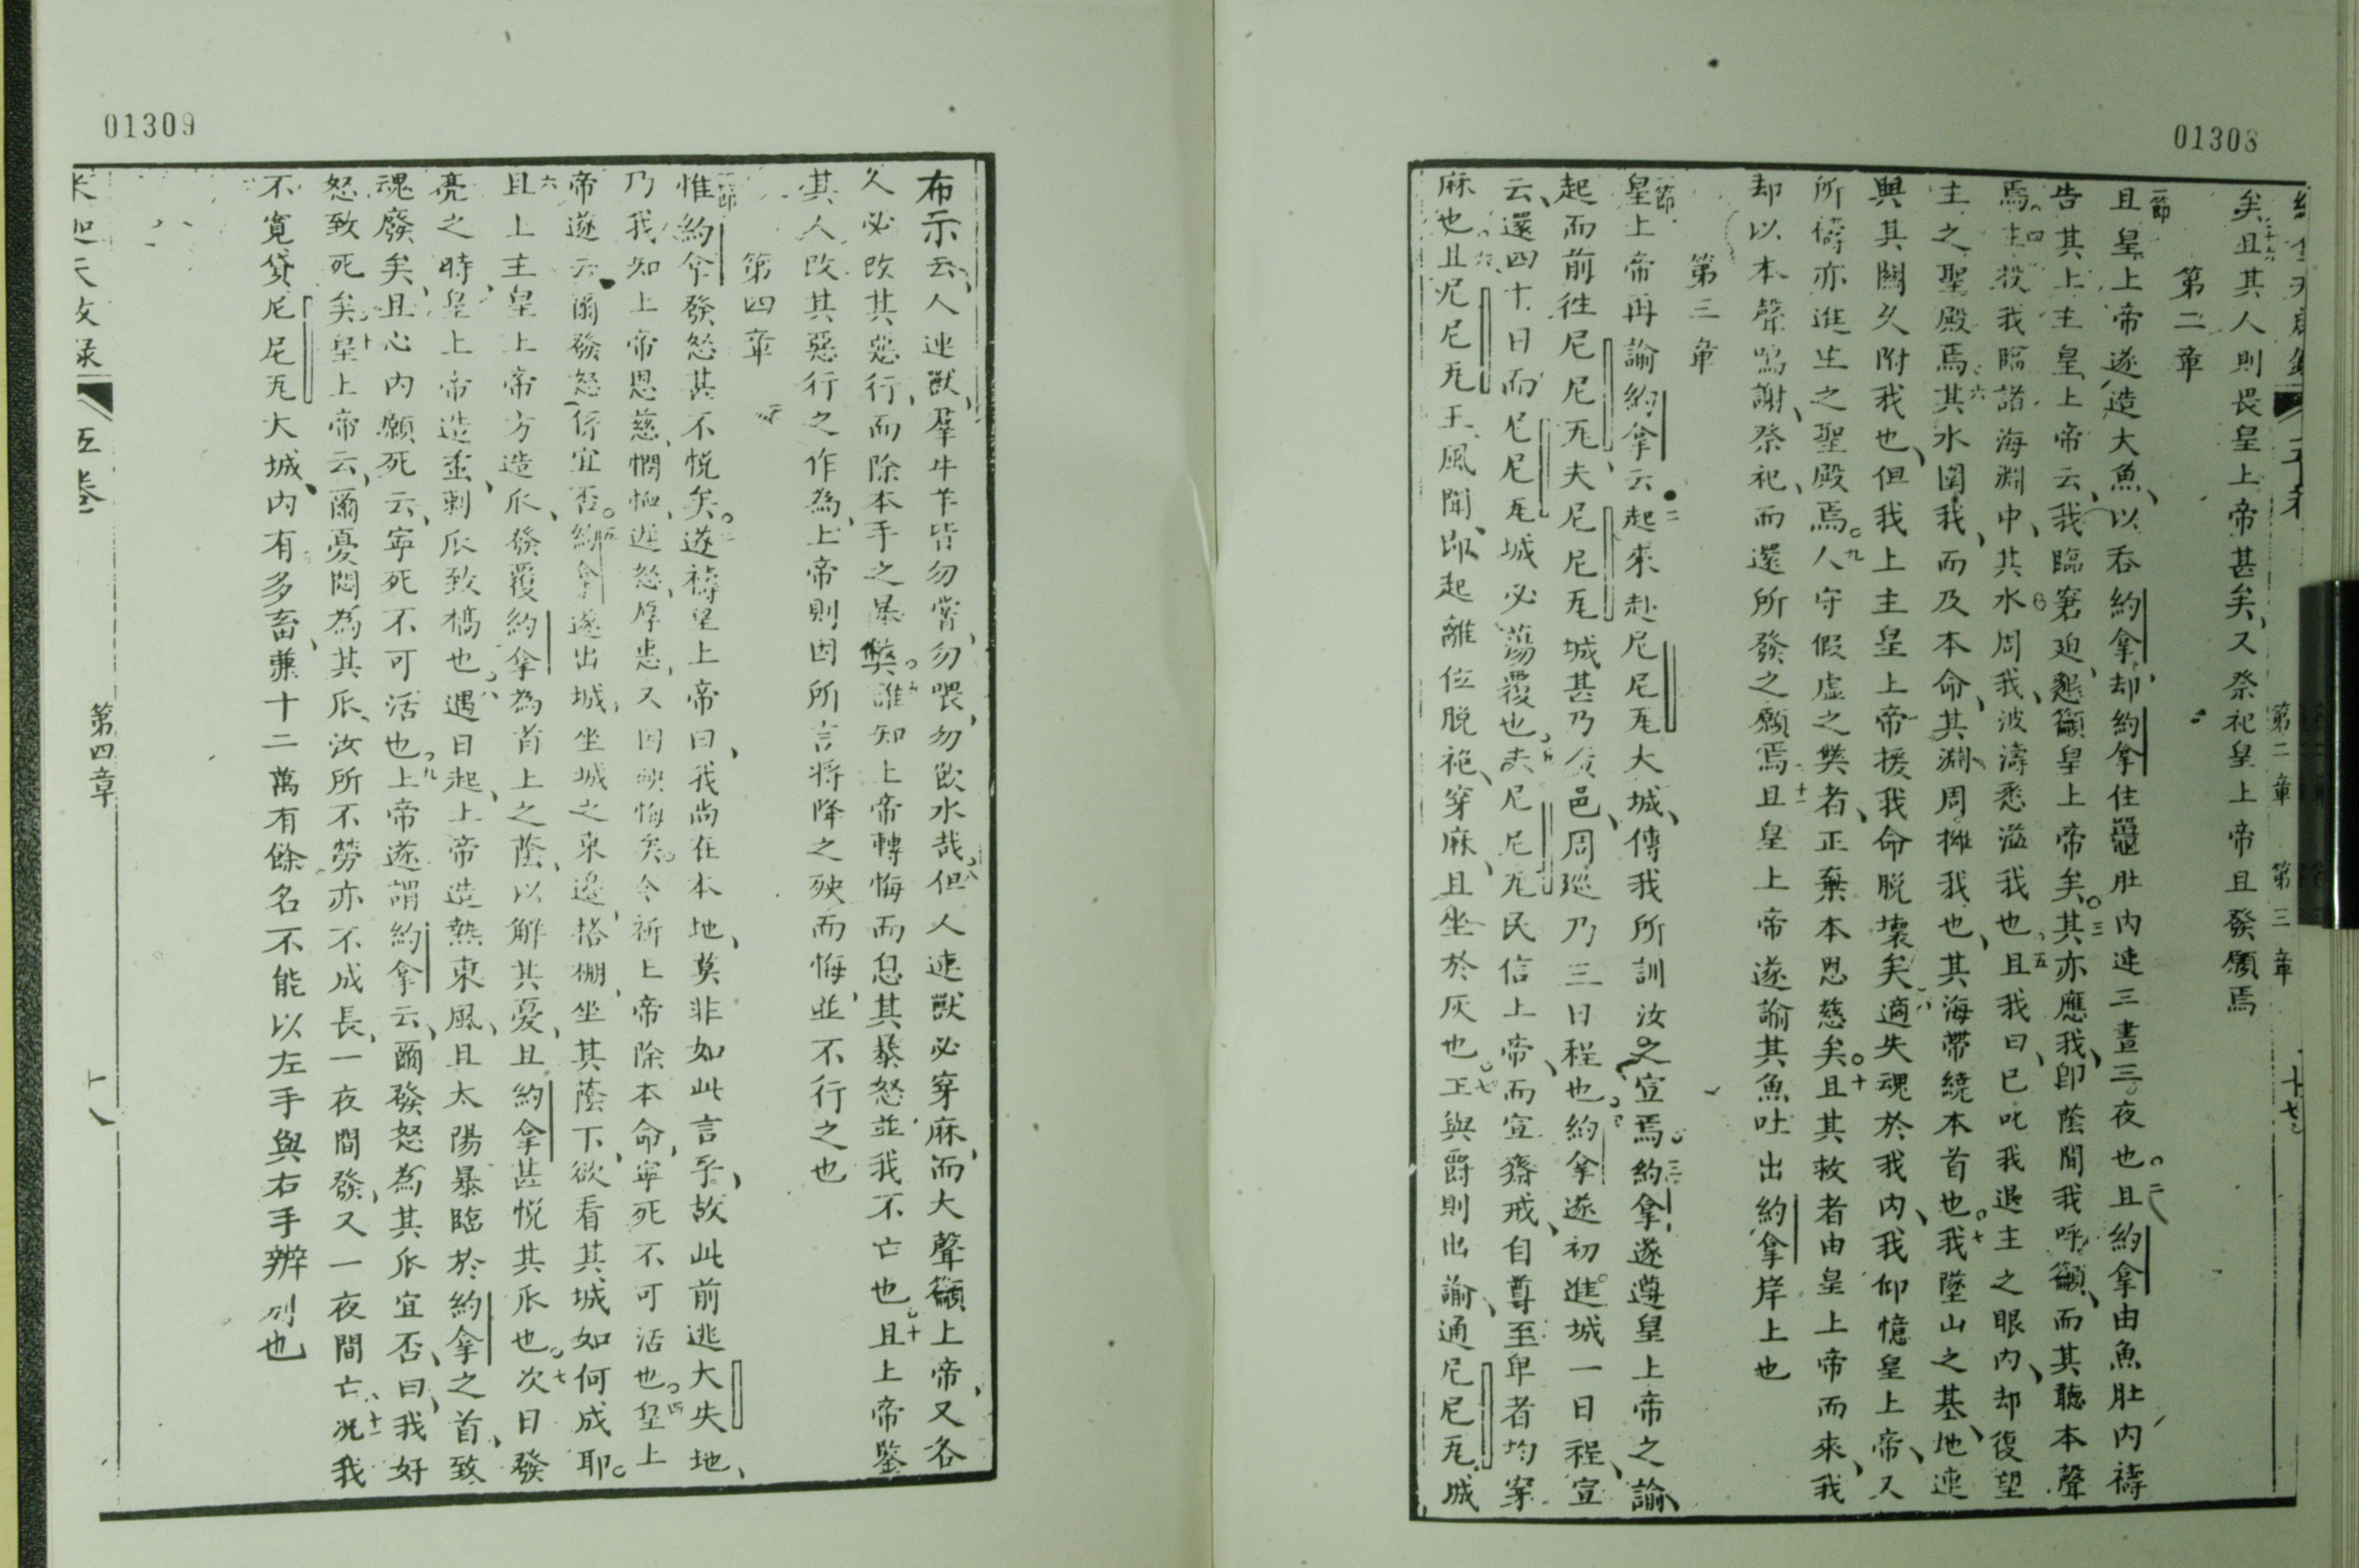 01308
第二章 第三章
十七
矣二十六且其人則畏皇上帝甚矣、又祭祀皇上帝且發願焉
第二章
一節且皇上帝遂造大魚、以吞約拿、却約拿住鼉肚內連三晝三夜也。二且約拿由魚肚內禱
告其上主皇上帝云、我臨窘迫、懇籲皇上帝矣。三其亦應我、卽蔭間我呼籲、而其聽本聲
焉。四主投我臨諸海淵中、其水周我、波濤悉溢我也。五且我曰、已叱我退主之眼內、却復望
主之聖殿焉。六其水圍我、而及本命、其淵周擁我也、其海帶繞本首也。七我墜山之基、地連
與其關久附我也、但我上主皇上帝援我命脫壞矣。八適失魂於我內、我仰憶皇上帝、又
所禱亦進生之聖殿焉。九人守假虛之獘者、正棄本恩慈矣。十且其救者由皇上帝而來、我
却以本聲鳴謝、祭祀、而還所發之願焉。十一且皇上帝遂諭其魚吐出約拿岸上也
第三章
一節皇上帝再諭約拿云。二起來赴尼尼瓦大城、傳我所訓汝之宣焉。三約拿遂遵皇上帝之諭、
起而前徃尼尼瓦、夫尼尼瓦城甚乃 邑、周廵乃三日程也。四約拿遂初進城一日程、宣
云、還四十日而尼尼瓦城必蕩覆也。五夫尼尼瓦民信上帝、而宣齋戒、自尊至卑者均穿
麻也。六且尼尼瓦王風聞、卽起離位脫袍、穿麻、且坐於灰也。七王與爵則出諭、通尼尼瓦城
01309
布示云、人連獸、羣牛羊皆勿嘗、勿喂、勿飲水哉。八但人連獸必穿麻、而大聲籲上帝、又各
久必改其惡行、而除本手之暴獘。九誰知上帝轉悔而息其暴怒、並我不亡也。十且上帝鑒
其人改其惡行之作為、上帝則因所言將降之殃而悔、並不行之也
第四章
一節惟約拿發怒甚不悅矣。二遂禱皇上帝曰、我尚在本地、莫非如此言乎、故此前逃大失地、
乃我知上帝恩慈、憫恤、遲怒、厚惠、又因殃悔矣。三今祈上帝除本命、寧死不可活也。四皇上
帝遂云、爾發怒、係宜否。五約拿遂出城、坐城之東邊、搭棚、坐其蔭下、欲看其城如何成耶。
六且上主皇上帝方造瓜、發覆約拿為首上之蔭、以解其憂、且約拿甚悅其瓜也。七次日發
亮之時、皇上帝造䖝、剌瓜致槁也。八遇日起、上帝造熱東風、且太陽暴臨於約拿之首、致
魂廢矣、且心內願死云、寧死不可活也。九上帝遂謂約拿云、爾發怒為其瓜宜否、曰、我好
怒致死矣。十皇上帝云、爾憂悶為其瓜、汝所不勞亦不成長、一夜間發、又一夜間亡、十一况我
不寬貸尼尼瓦大城、內有多畜、兼十二萬有餘名不能以左手與右手辨別也
五卷
第四章
十八